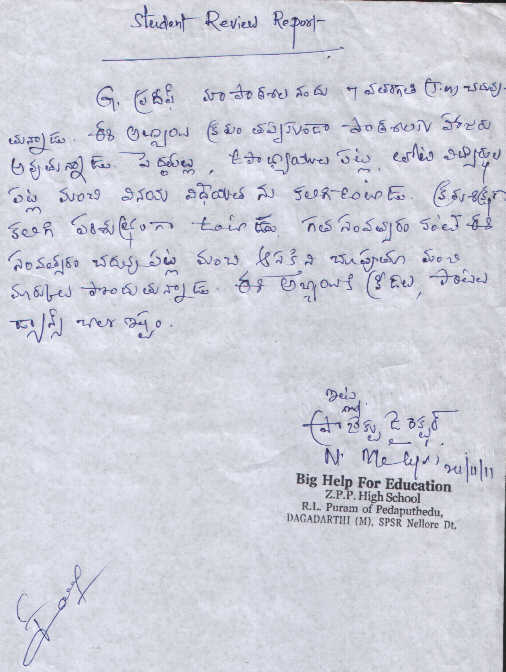 Student Review Report
G. ప్రదీప్ మా పాఠశాల నందు 9 వతరగతి (T.m) చదువు-
తున్నాడు. ఈ అబ్బాయి క్రమం తప్పకుండా పాఠశాలకు హాజరు
అవుతున్నాడు. పెద్దలపట్ల, ఉపాధ్యాయుల పట్ల, తోటి విద్యార్థుల
పట్ల మంచి వినయ విధేయత ను కలిగిఉంటాడు. క్రమశిక్షణ
కలిగి పరిశుభ్రంగా ఉంటాడు. గత సంవత్సరం కంటే ఈ
సంవత్సరం చదువు పట్ల మంచి ఆసక్తిని చూపుతూ మంచి
మార్కులు పొందుతున్నాడు. ఈ అబ్బాయికి క్రీడలు, పాటలు
డ్యాన్స్ చాలా ఇష్టం.
ఇట్లు
ప్రాజెక్టు డైరెక్టర్
Big Help For Education
Z.P.P. High School
R.L. Puram of Pedaputhedu,
DAGADARTHI (M), SPSR Nellore Dt.